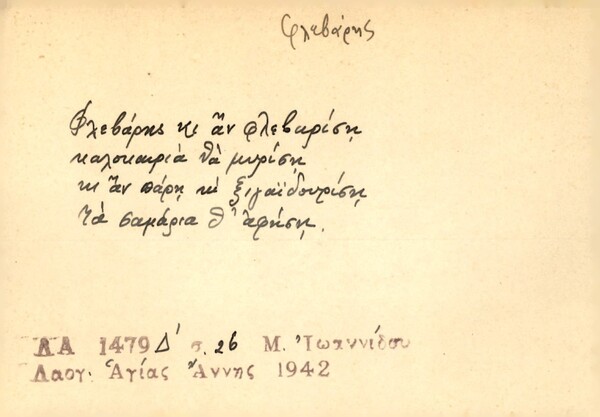 Φλεβάρης
Φλεβάρης κι ἂν φλεβαρίσῃ
καλοκαιριὰ θὰ μυρίσῃ
κι ἂν πάρῃ κὶ ξιγαϊδουρίσῃ
Τὰ σαμάρια θ' ἀφήσῃ.
ΛΑ 1479 Δ' σ. 26 Μ. Ἰωαννίδου
Λαογ. Ἁγίας Ἄννης 1942